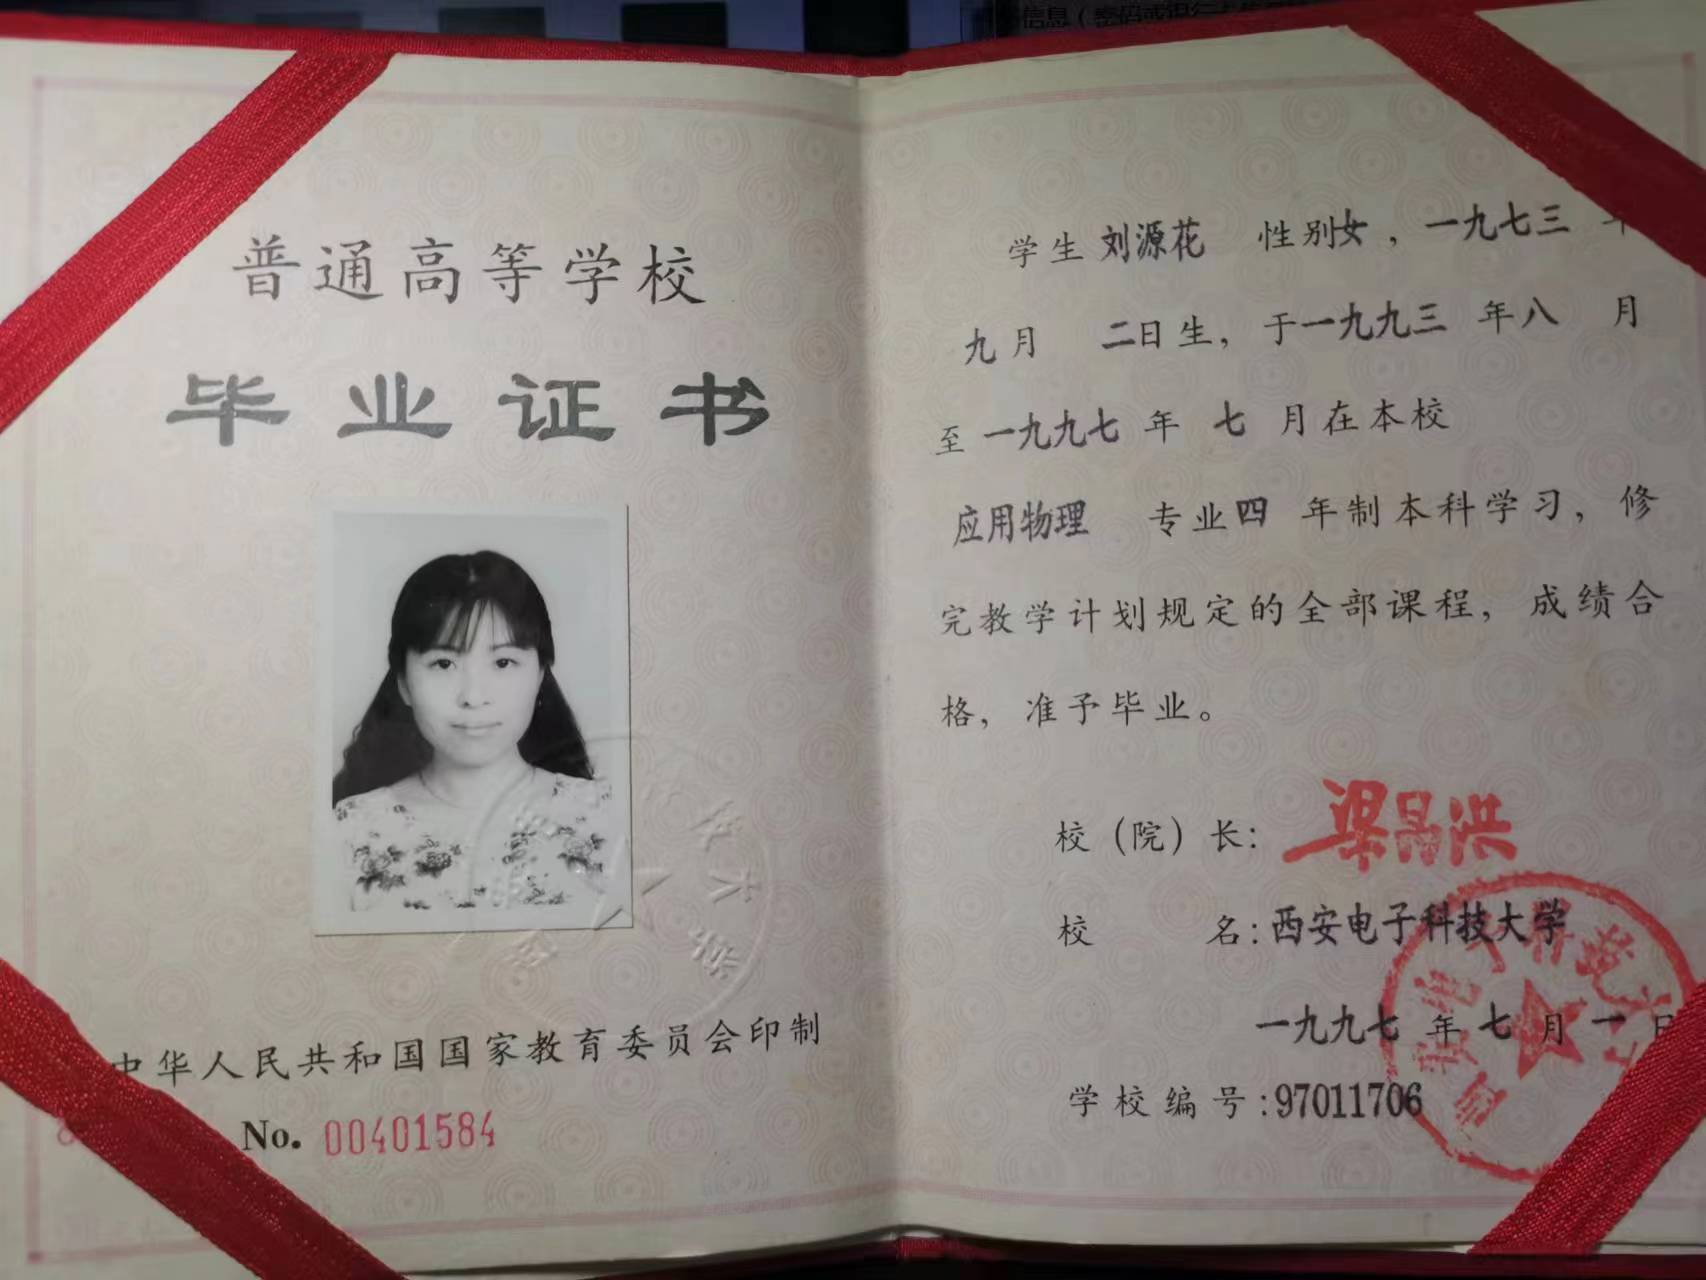 信息（密码或银行卡信息
普通高等学校
毕业证书
中华人民共和国国家教育委员会印制
No. 00401584
学生 刘源花 性别女，一九七三 年
九月 二日生，于一九九三 年八 月
至 一九九七 年 七 月在本校
应用物理 专业四 年制本科学习，修
完教学计划规定的全部课程，成绩合
格，准予毕业。
校（院）长：梁昌洪
校 名：西安电子科技大学
一九九七 年 七 月 一 日
学校编号：97011706
西安电子科技大学